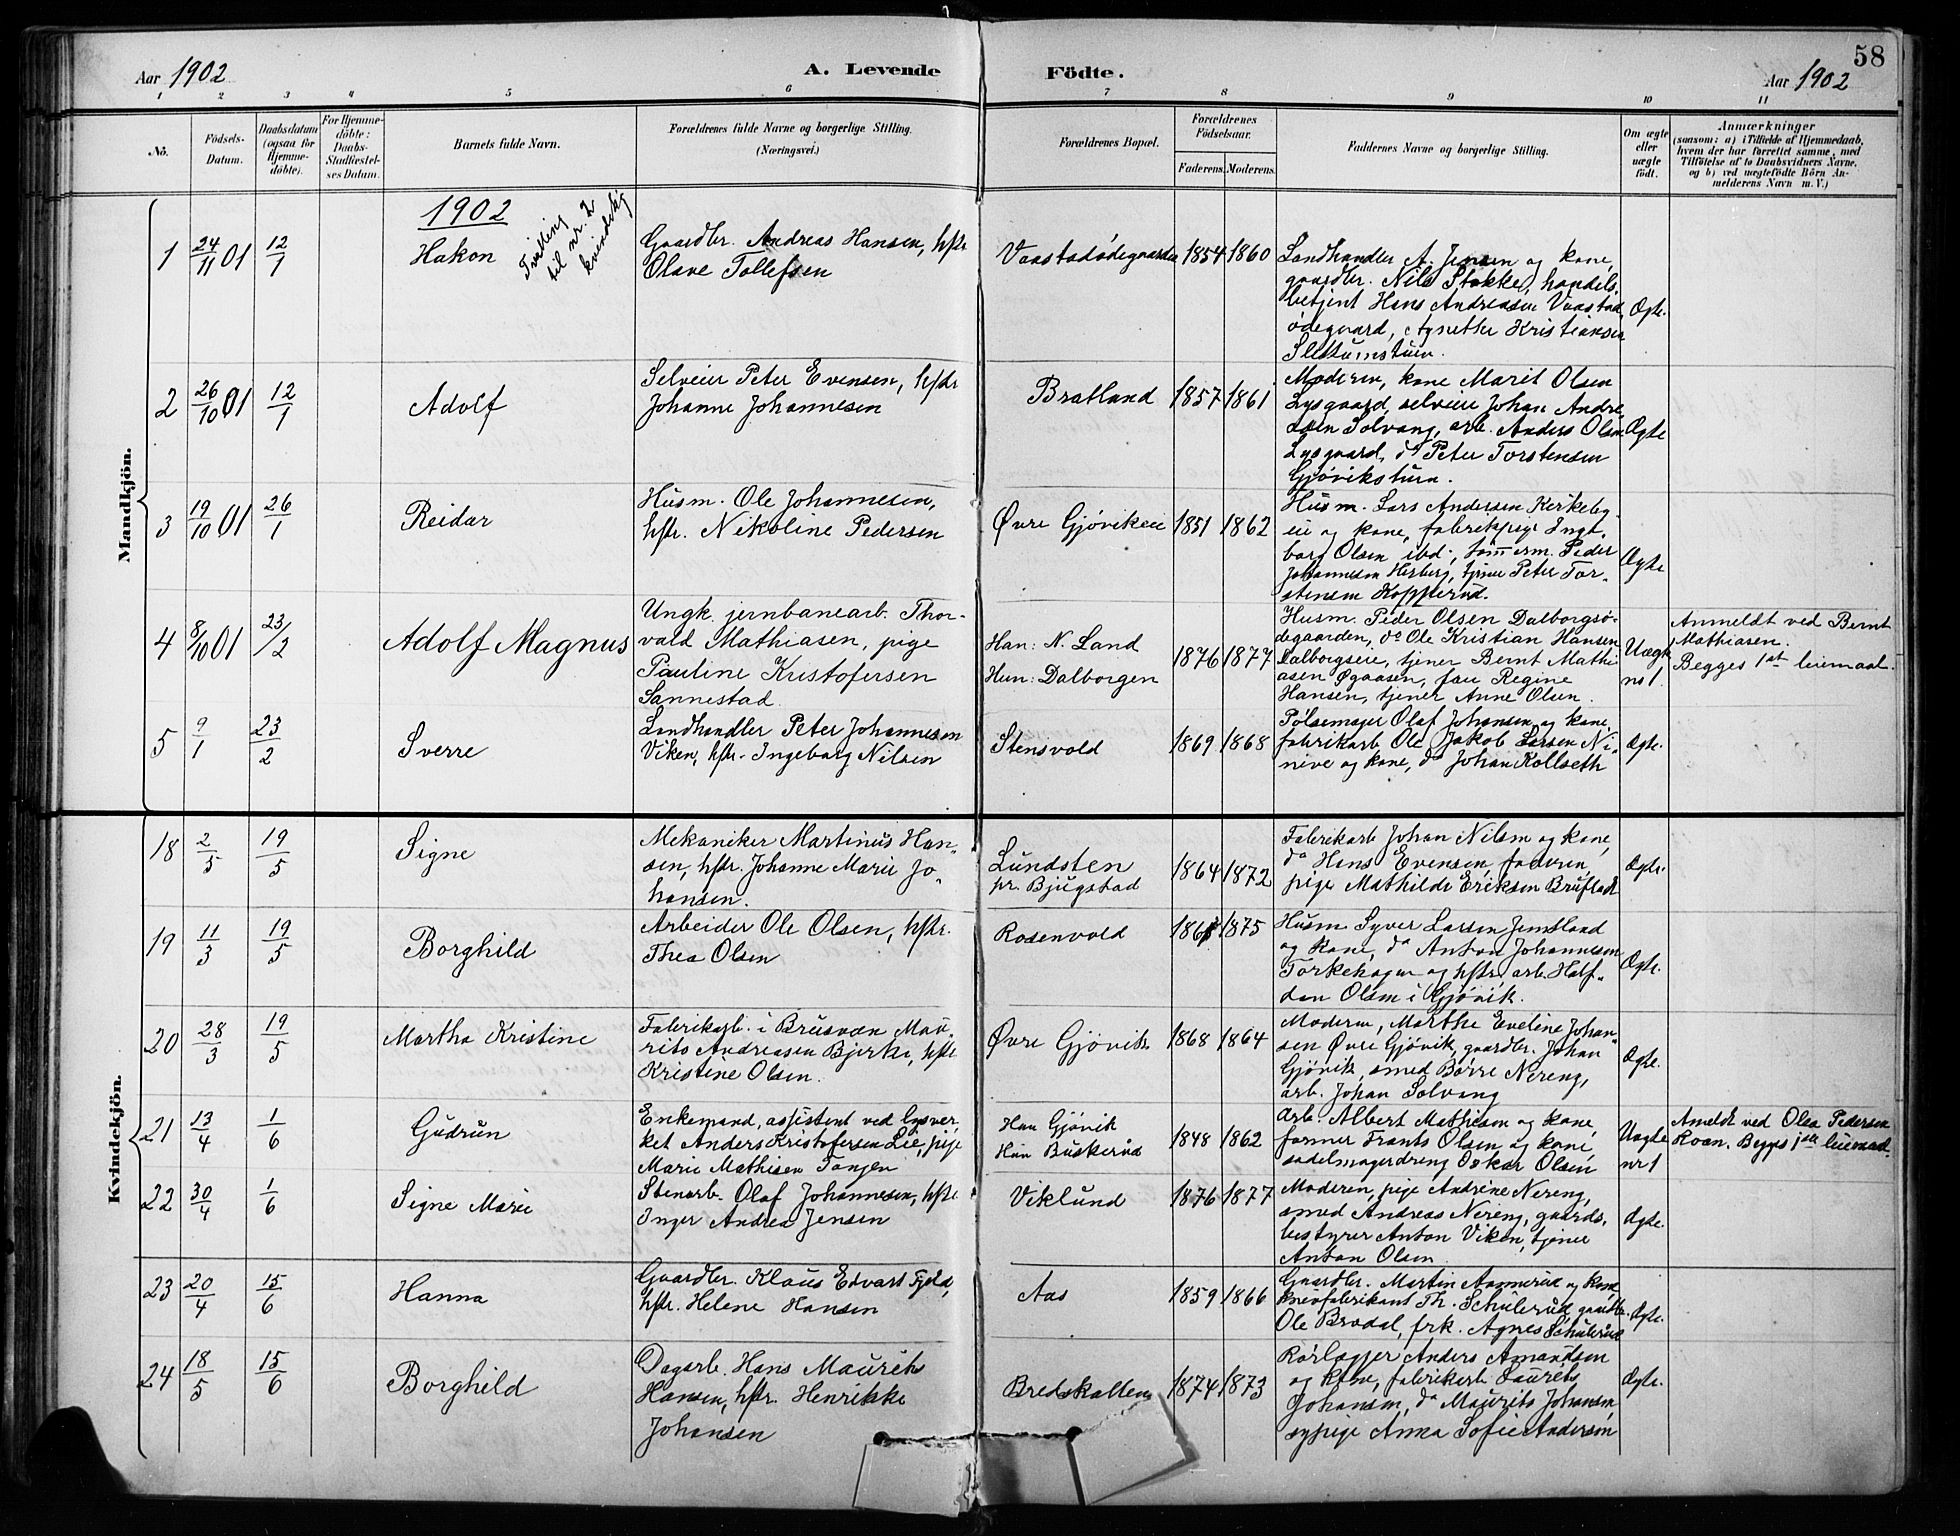 58
Aar 1902
A. Levende
Födte.
Aar 1902
1 2 3 4 5 6 7 8 9 10 11
No.
Födsels-
Datum.
Daabsdatum
(ogsaa for
Hjemme-
döbte).
For Hjemme-
döbte:
Daabs-
Stadfæstel-
ses Datum.
Barnets fulde Navn.
Forældrenes fulde Navne og borgerlige Stilling.
(Næringsvei.)
Forældrenes Bopæl.
Forældrenes
Födselsaar.
Faderens. Moderens.
Faddernes Navne og borgerlige Stilling.
Om ægte
eller
uægte
födt.
Anmærkninger
(saasom: a) i Tilfælde af Hjemmedaab,
hvem der har forrettet samme, med
Tilföielse af to Daabsvidners Navne,
og b) ved uægtefödte Börn An-
melderens Navn m. V.)
Mandkjön.
1902
1
24/11 01
12/1
Hakon
Tvilling
til nr. 2
kvindekj
Gaardbr. Andreas Hansen, hstr
Olave Tollefsen
Vaastadødegaarden
1854 1860
Landhandler A. Jensen og kone,
gaardbr. Nils Stokke, handels.
betjent Hans Andreasen Vaastad
ødegaard, Agnethe Kristiansen
Slettumstuen.
Ægte.
2
26/10 01
12/1
Adolf
Selveier Peter Evensen, hstr
Johanne Johannesen
Bratland
1857 1861
Moderen, kone Marit Olsen
Lysgaard, selveier Johan Andre,
asen Solvang, arb. Anders Olsen
Lysgaard, do Peter Torstensen
Gjøvikstuen.
Ægte
3
19/10 01
26/1
Reidar
Husm. Ole Johannesen,
hstr. Nikoline Pedersen
Øvre Gjøvikeie
1851 1862
Husm. Lars Andersen Kirkeby-
eie og kone, fabrikpige Inge-
borg Olsen ibd., tømmerm. Peder
Johannesen Herberg, tjener Peter Tor-
stensen Kopperud.
Ægte
4
8/10 01
23/2
Adolf Magnus
Ungk. jernbanearb. Thor-
vald Mathiasen, pige
Pauline Kristofersen
Sannestad
Han: N. Land
Hun: Dalborgen
1876 1877
Husm. Peder Olsen Dalborgsø-
degaarden, do Ole Kristian Hansen
Dalborgseie, tjener Bernt Mathi
asen Øgaasen, frue Regine
Hansen, tjener Anne Olsen.
Uægte
no 1.
Anmeldt ved Bernt
Mathiasen.
Begges 1st leiemaal.
5
9/1
23/2
Sverre
Landhandler Peter Johannesen
Viken, hstr. Ingeborg Nilsen
Stensvold
1869 1868
Pølsemager Olaf Johansen og kone,
fabrikarb Ole Jakob Larsen Ni-
nive og kone, do Johan Kollseth
Ægte.
Kvindekjön.
18
2/5
19/5
Signe
Mekaniker Martinus Han-
sen, hstr. Johanne Marie Jo-
hansen.
Lundsten
pr. Bjugstad
1864 1872
Fabrikarb Johan Nilsen og kone,
do Hans Evensen, faderen,
pige Mathilde Eriksen Bruflat
Ægte.
19
11/3
19/5
Borghild
Arbeider Ole Olsen, hstr.
Thea Olsen
Rosenvold
1875
Husm Syver Larsen Jemtland
og kone, do Anton Johannesen
Torkehagen og hstr. arb. Half-
dan Olsen i Gjøvik.
Ægte.
20
28/3
19/5
Martha Kristine
Fabrikarb. i Brusvæn Mau-
rits Andreasen Bjerke, hstr
Kristine Olsen.
Øvre Gjøvik
1868 1864
Moderen, Marthe Eveline Johan-
sen Øvre Gjøvik, gaardbr. Johan
Gjøvik, smed Børre Nereng,
arb. Johan Solvang
Ægte.
21
13/4
1/6
Gudrun
Enkemand, assistent ved lysver-
ket Anders Kristofersen Lie, pige
Marie Mathisen Tangen
Han Gjøvik
Hun Buskerud
1848 1862
Arb. Albert Mathisen og kone,
former Frants Olsen og kone,
sadelmagerdreng Oskar Olsen
Uægte
nr 1
Anmeldt ved Olea Pedersen
Roan. Begges 1ste leiemaal.
22
30/4
1/6
Signe Marie
Stenarb. Olaf Johannesen, hstr
Inger Andrea Jensen
Viklund
1876 1877
Moderen, pige Andrine Nereng,
smed Andreas Nereng, gaards.
bestyrer Anton Viken, tjener
Anton Olsen.
Ægte.
23
20/4
15/6
Hanna
Gaardbr. Klaus Edvart Fjeld,
hstr. Helene Hansen
Aas
1859 1866
Gaardbr. Martin Aannerud og kone
knivfabrikant Th. Schulerud, gaardbr.
Ole Brodal, frk. Agnes Schulerud
Ægte.
24
18/5
15/6
Borghild
Dagarb. Hans Maurits
Hansen, hstr. Henrikke
Johansen
Bredskallen
1874 1873
Rørlægger Anders Amandsen
og kone, fabrikarb Laurits
Johansen, do Maurits Johansen,
sypige Anna Sofie Andersen
Ægte.